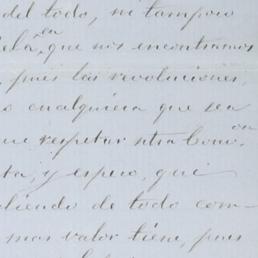 del todo, ni tampoco
en que nos encontramos
, pues las revoluciones,
cualquiera que sea
que respetar otra
ta, y espero, que
liendo de todo com-
mas valor tiene, pues